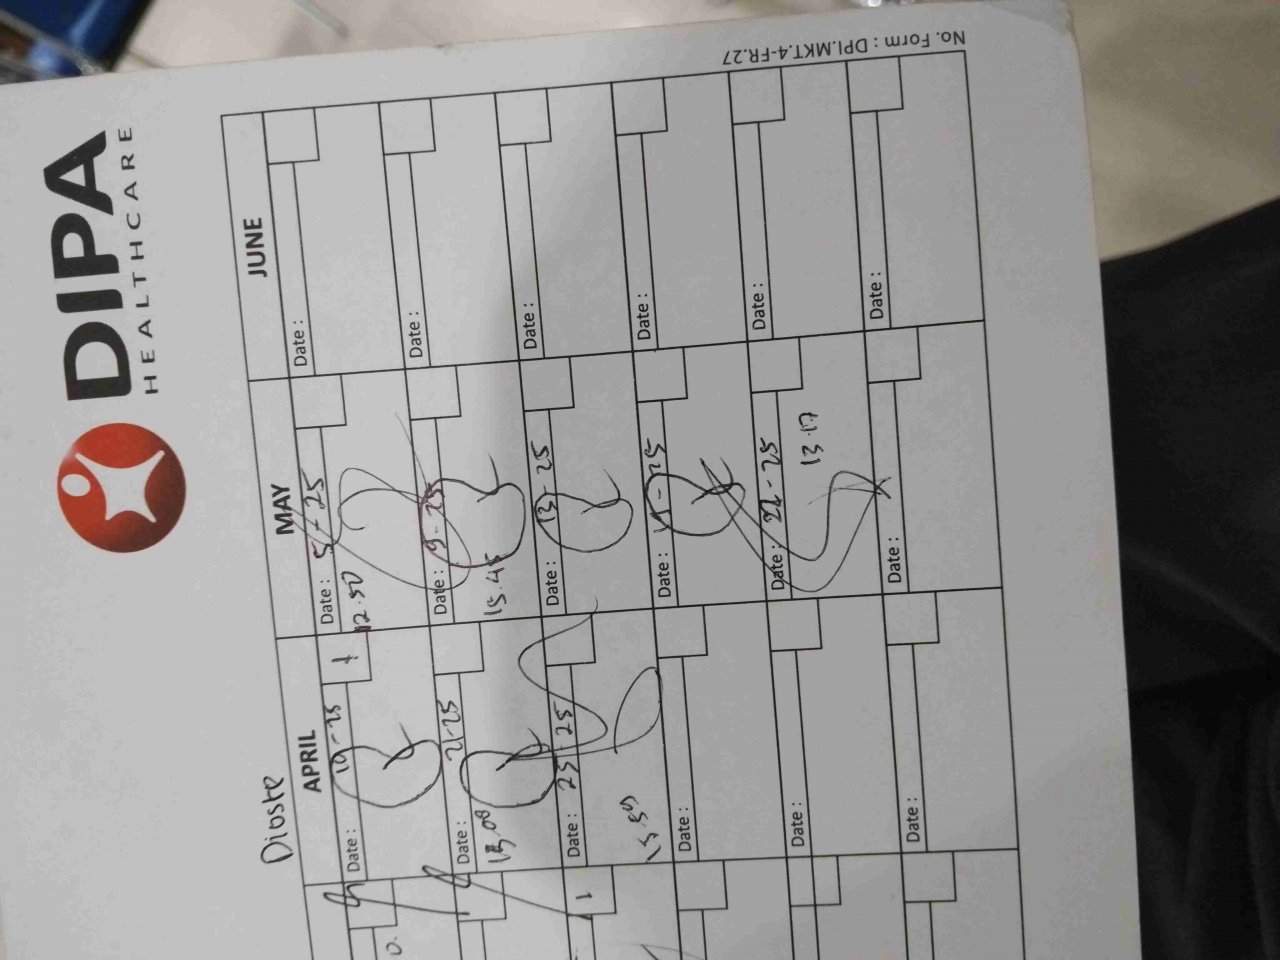 DIPA
HEALTHCARE
No. Form : DPI.MKT.4-FR.27
APRIL
MAY
JUNE
Date :
Date : 5 - 25
12.50
Date :
Date : 21-25
Date : 9 - 25
15.45
Date :
Date : 23 - 25
Date : 13 - 25
Date :
Date :
Date :
Date :
Date :
Date : 22 - 25
13.17
Date :
Date :
Date :
Date :